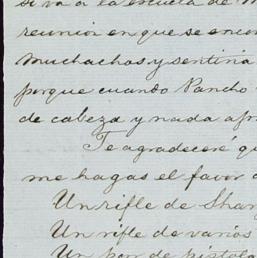 si va a la escuela de
reunion en que se encon
muchachos y sentiria
porque cuando Pancho
de cabeza y nada afr
Te agradeceré qu
me hagas el favor d
Un rifle de Shar
Un rifle de varios
Un par de pistola